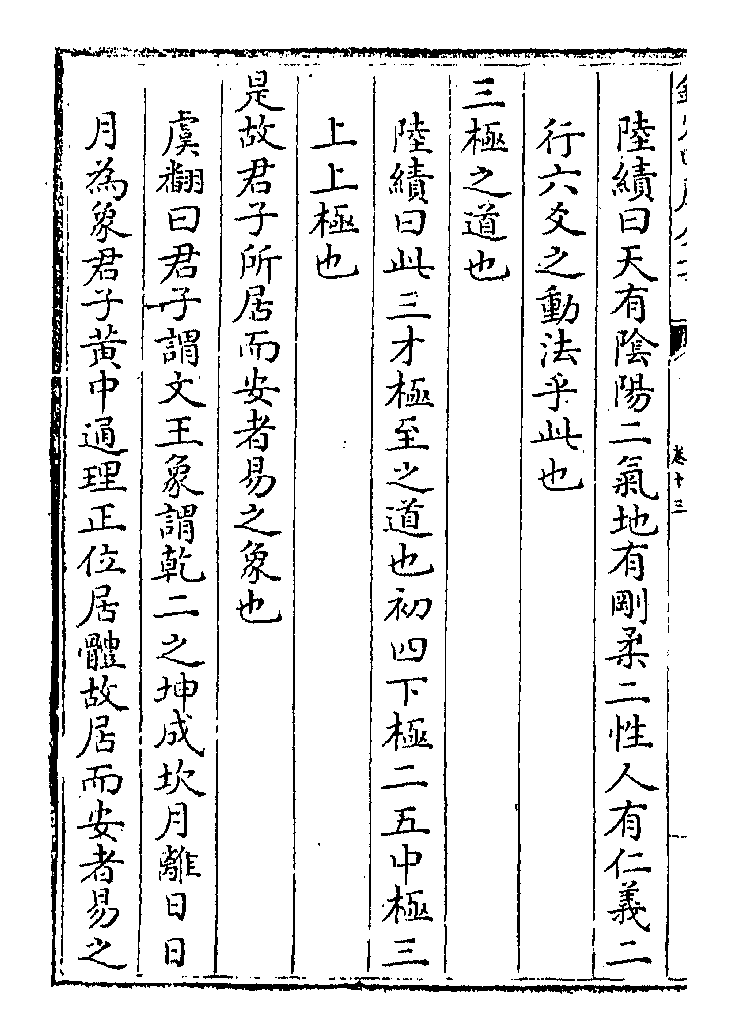 卷十三
陸績曰天有陰陽二氣地有剛柔二性人有仁義二
行六爻之動法乎此也
三極之道也
陸績曰此三才極至之道也初四下極二五中極三
上上極也
是故君子所居而安者易之象也
虞翻曰君子謂文王象謂乾二之坤成坎月離日日
月為象君子黃中通理正位居體故居而安者易之